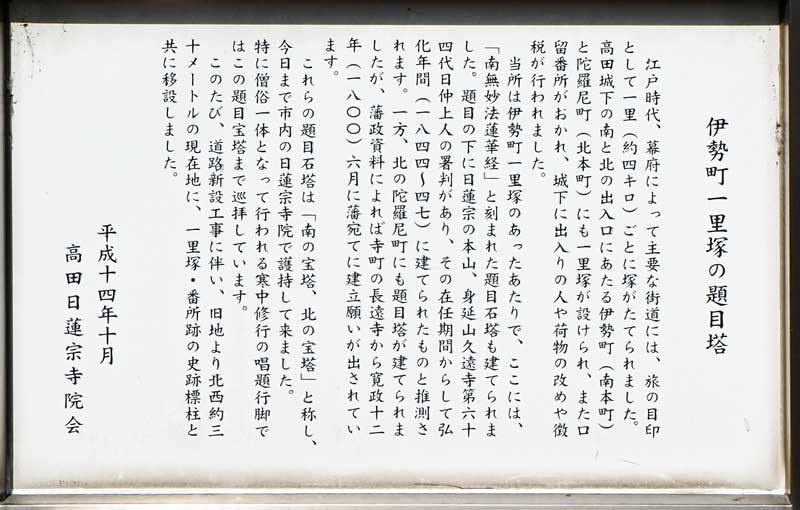 伊勢町一里塚の題目塔
江戸時代、幕府によって主要な街道には、旅の目印
として一里（約四キロ）ごとに塚がたてられました。
高田城下の南と北の出入口にあたる伊勢町（南本町）
と陀羅尼町（北本町）にも一里塚が設けられ、また口
留番所がおかれ、城下に出入りの人や荷物の改めや徴
税が行われました。
当所は伊勢町一里塚のあったあたりで、ここには、
「南無妙法蓮華経」と刻まれた題目石塔も建てられま
した。題目の下に日蓮宗の本山、身延山久遠寺第六十
四代日仲上人の署判があり、その在任期間からして弘
化年間（一八四四〜四七）に建てられたものと推測さ
れます。一方、北の陀羅尼町にも題目塔が建てられま
したが、藩政資料によれば寺町の長遠寺から寛政十二
年（一八〇〇）六月に藩宛てに建立願いが出されてい
ます。
これらの題目石塔は「南の宝塔、北の宝塔」と称し、
今日まで市内の日蓮宗寺院で護持して来ました。
特に僧俗一体となって行われる寒中修行の唱題行脚で
はこの題目宝塔まで巡拝しています。
このたび、道路新設工事に伴い、旧地より北西約三
十メートルの現在地に、一里塚・番所跡の史跡標柱と
共に移設しました。
平成十四年十月
高田日蓮宗寺院会